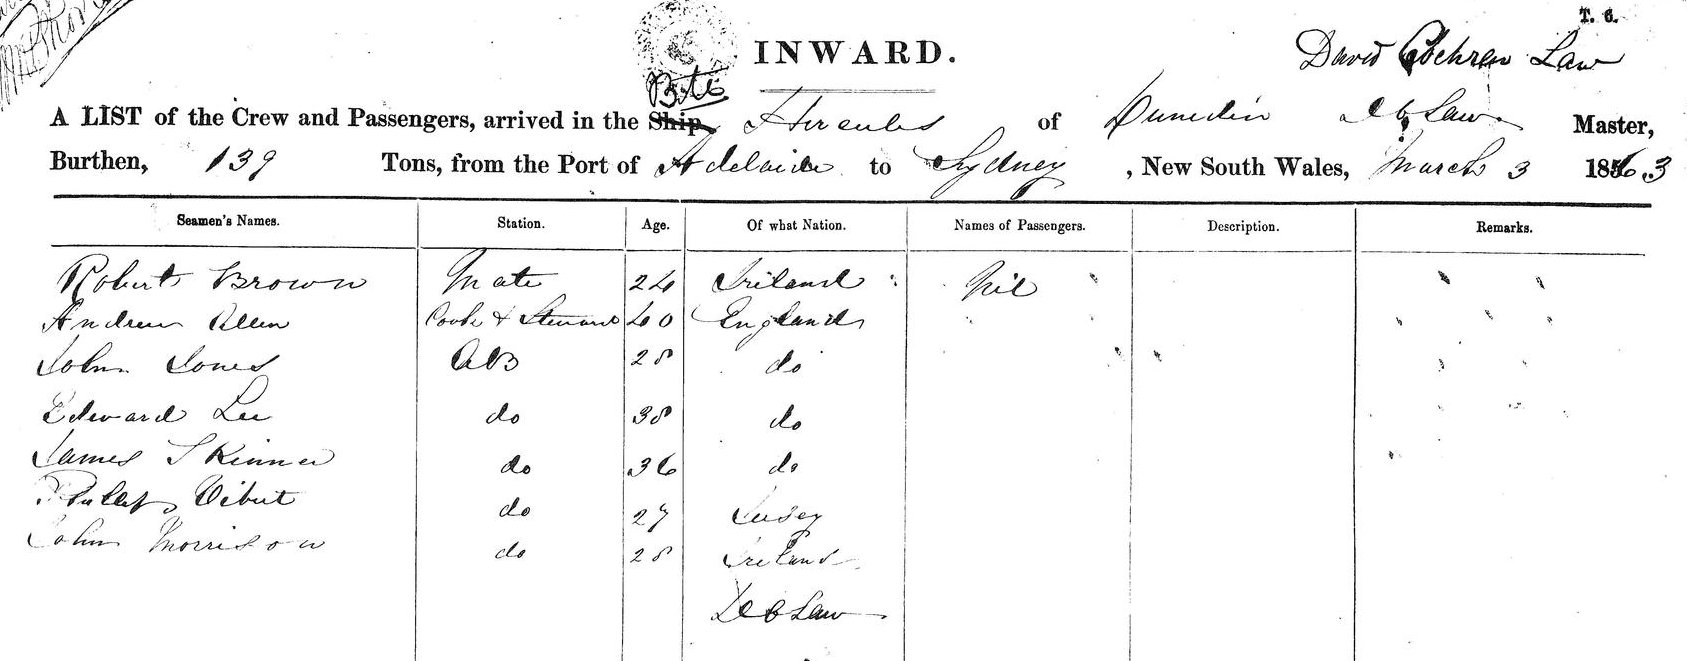 T. 6.
INWARD.
David Cochran Law
Brig
A LIST of the Crew and Passengers, arrived in the Ship, Hercules of Dunedin D C Law Master,
Burthen, 139 Tons, from the Port of Adelaide to Sydney, New South Wales, March 3 1863
Seamen's Names. Station. Age. Of what Nation. Names of Passengers. Description. Remarks.
Robert Brown Mate 24 Ireland Nil
Andrew Allen Cook & Steward 40 England
John Jones AB 28 do
Edward Lee do 38 do
James Skinner do 36 do
Vibert do 27 Jersey
John Morrison do 28 Ireland
D C Law